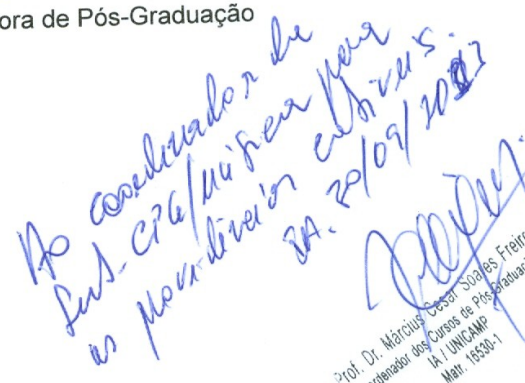 ora de Pós-Graduação
Ao coordenador de
Sub-CPG/Música para
as providências cabíveis.
IA. 20/09/2013
Prof. Dr. Március César Soares Freire
Coordenador dos Cursos de Pós-Graduação
IA / UNICAMP
Matr. 16530-1